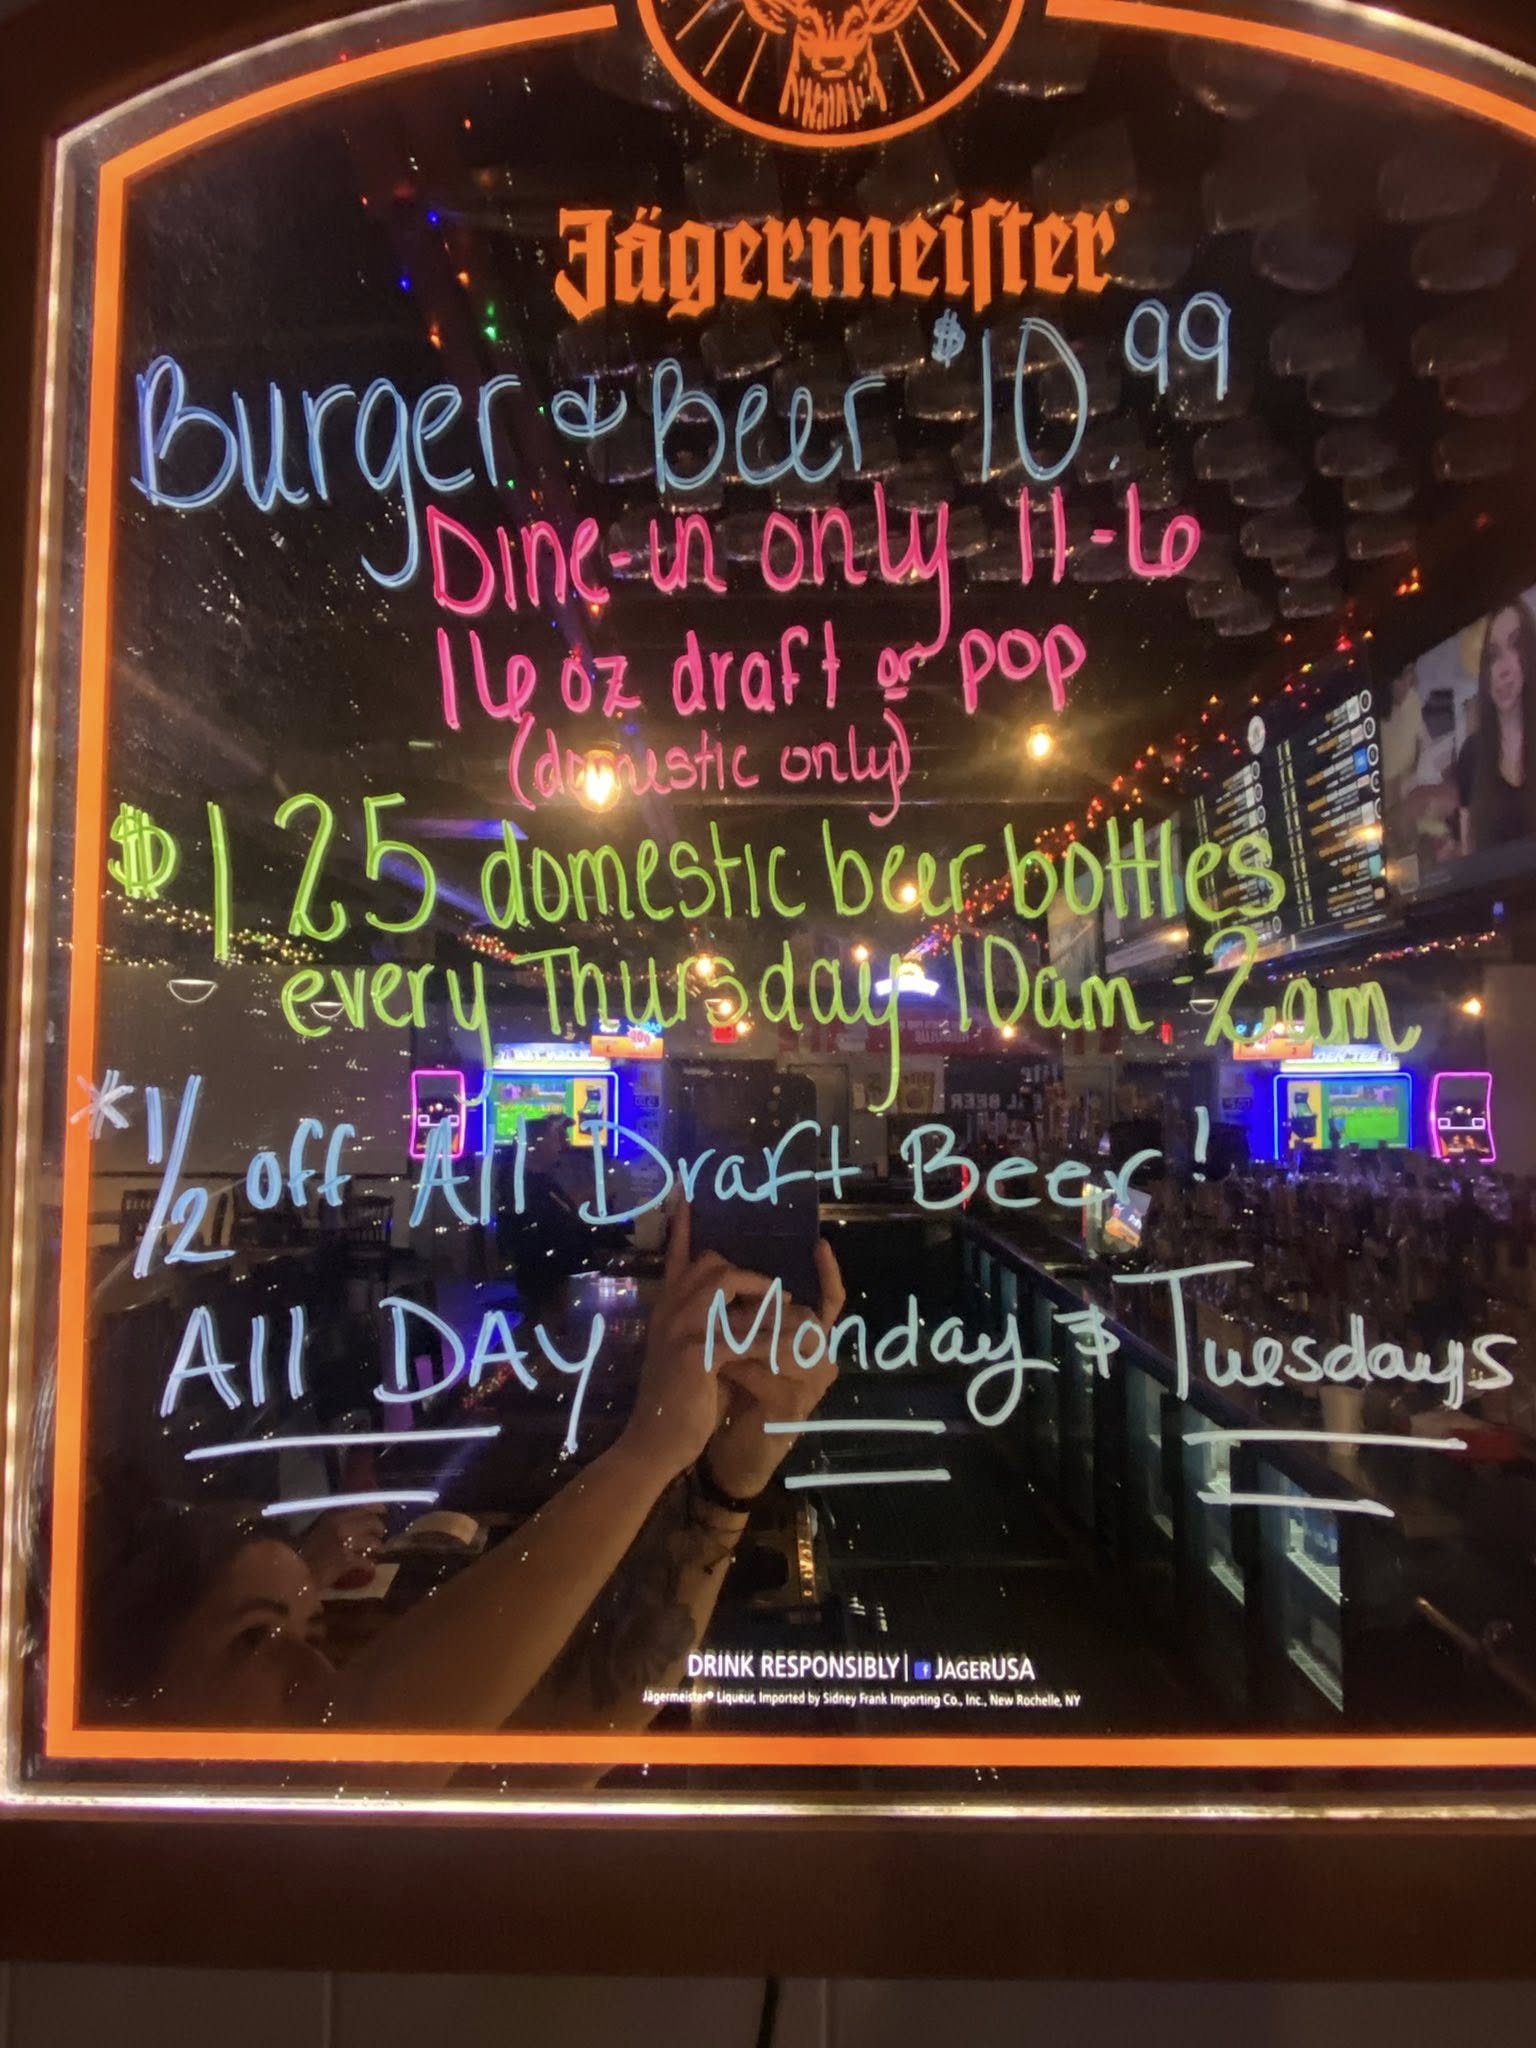 Jägermeister
Burger & Beer $10.99
Dine-in only 11-6
16 oz draft or pop
(domestic only)
$1 25 domestic beer bottles
every Thursday 10am - 2am
*1/2 off All Draft Beer!
All DAY Monday & Tuesdays
DRINK RESPONSIBLY | f JAGERUSA
Jägermeister® Liqueur, Imported by Sidney Frank Importing Co., Inc., New Rochelle, NY